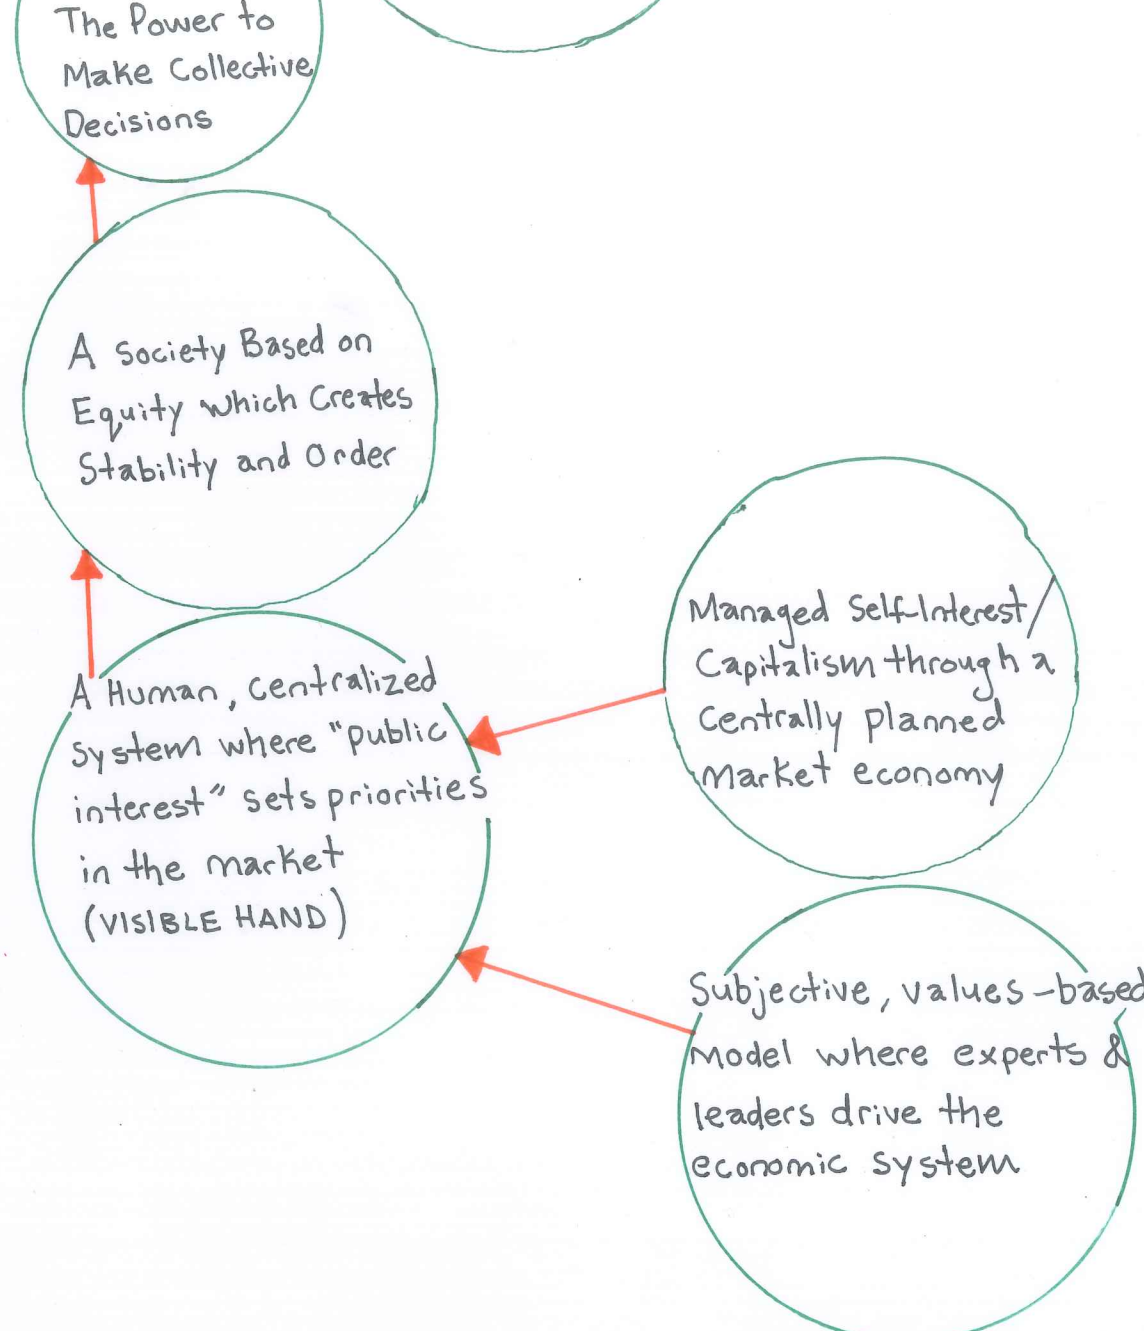 The Power to
Make Collective
Decisions
A Society Based on
Equity which Creates
Stability and Order
A Human, centralized
system where "public
interest" sets priorities
in the market
(VISIBLE HAND)
Managed Self-Interest/
Capitalism through a
centrally planned
market economy
Subjective, values-based
model where experts &
leaders drive the
economic system